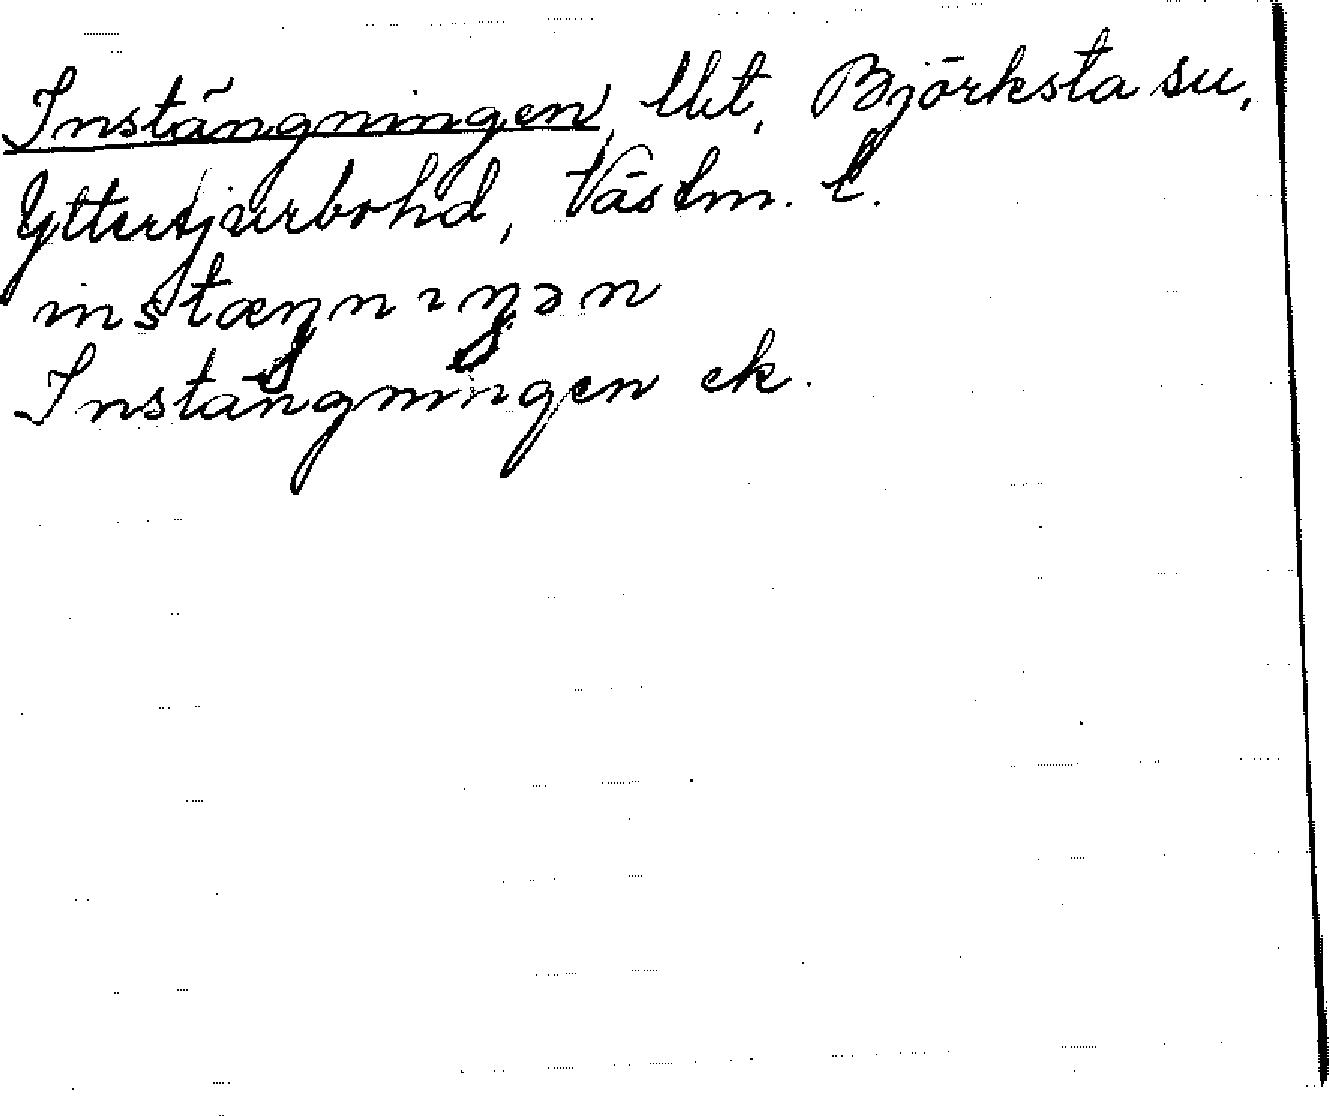 Instängningen, Ubt, Björksta sn,
Yttertjurbo hd, Västm. l.
instæŋnıŋən
Instängningen ek.